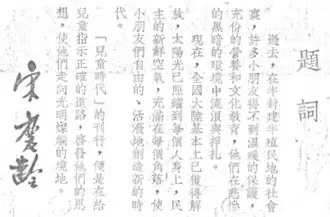 題詞
過去，在半封建半殖民地的社會
裏，許多小朋友得不到溫暖的保護，
充份的營養和文化教育，他們在悽慘
的黑暗的環境中流浪與掙扎。
現在，全國大陸基本上已獲得解
放，太陽光已照耀到每個人身上，民
主的新鮮空氣，充滿在每個角落，使
小朋友們自由的、活潑地創造新的時
代。
「兒童時代」的刊行，便是在給
兒童指示正確的道路，啓發他們的思
想，使他們走向光明燦爛的境地。
宋慶齡